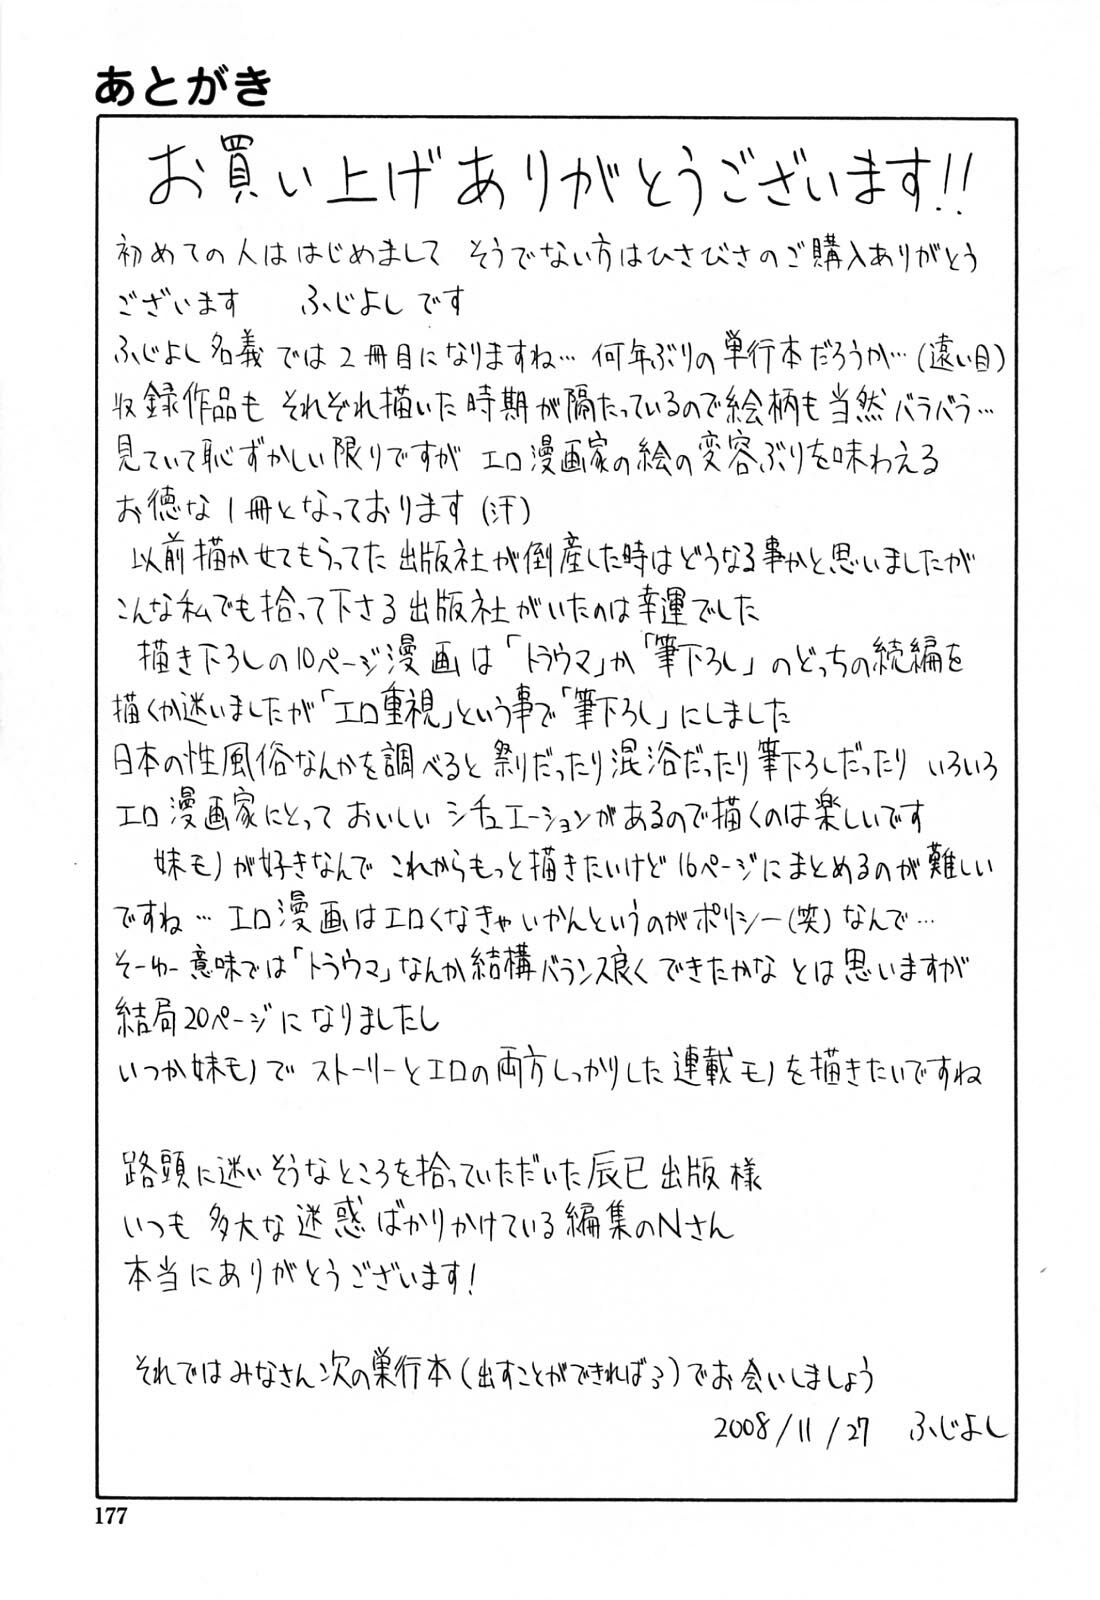 あとがき
お買い上げありがとうございます!!
初めての人ははじめまして そうでない方はひさびさのご購入ありがとう
ございます ふじよしです
ふじよし名義では2冊目になりますね… 何年ぶりの単行本だろうか…(遠い目)
収録作品も それぞれ描いた時期が隔たっているので絵柄も当然バラバラ…
見ていて恥ずかしい限りですが エロ漫画家の絵の変容ぶりを味わえる
お徳な1冊となっております(汗)
以前描かせてもらってた出版社が倒産した時はどうなる事かと思いましたが
こんな私でも拾って下さる出版社がいたのは幸運でした
描き下ろしの10ページ漫画は「トラウマ」か「筆下ろし」のどっちの続編を
描くか迷いましたが「エロ重視」という事で「筆下ろし」にしました
日本の性風俗なんかを調べると祭りだったり混浴だったり筆下ろしだったり いろいろ
エロ漫画家にとって おいしい シチュエーションがあるので描くのは楽しいです
妹モノが好きなんで これからもっと描きたいけど16ページにまとめるのが難しい
ですね…エロ漫画はエロくなきゃいかんというのがポリシー(笑)なんで…
そーゆー意味では「トラウマ」なんか結構バランス良くできたかな とは思いますが
結局20ページになりましたし
いつか妹モノで ストーリーとエロの両方しっかりした連載モノを描きたいですね
路頭に迷いそうなところを拾っていただいた辰巳出版様
いつも多大な迷惑ばかりかけている編集のNさん
本当にありがとうございます!
それではみなさん次の単行本(出すことができればろ)でお会いしましょう
2008/11/27 ふじよし
177